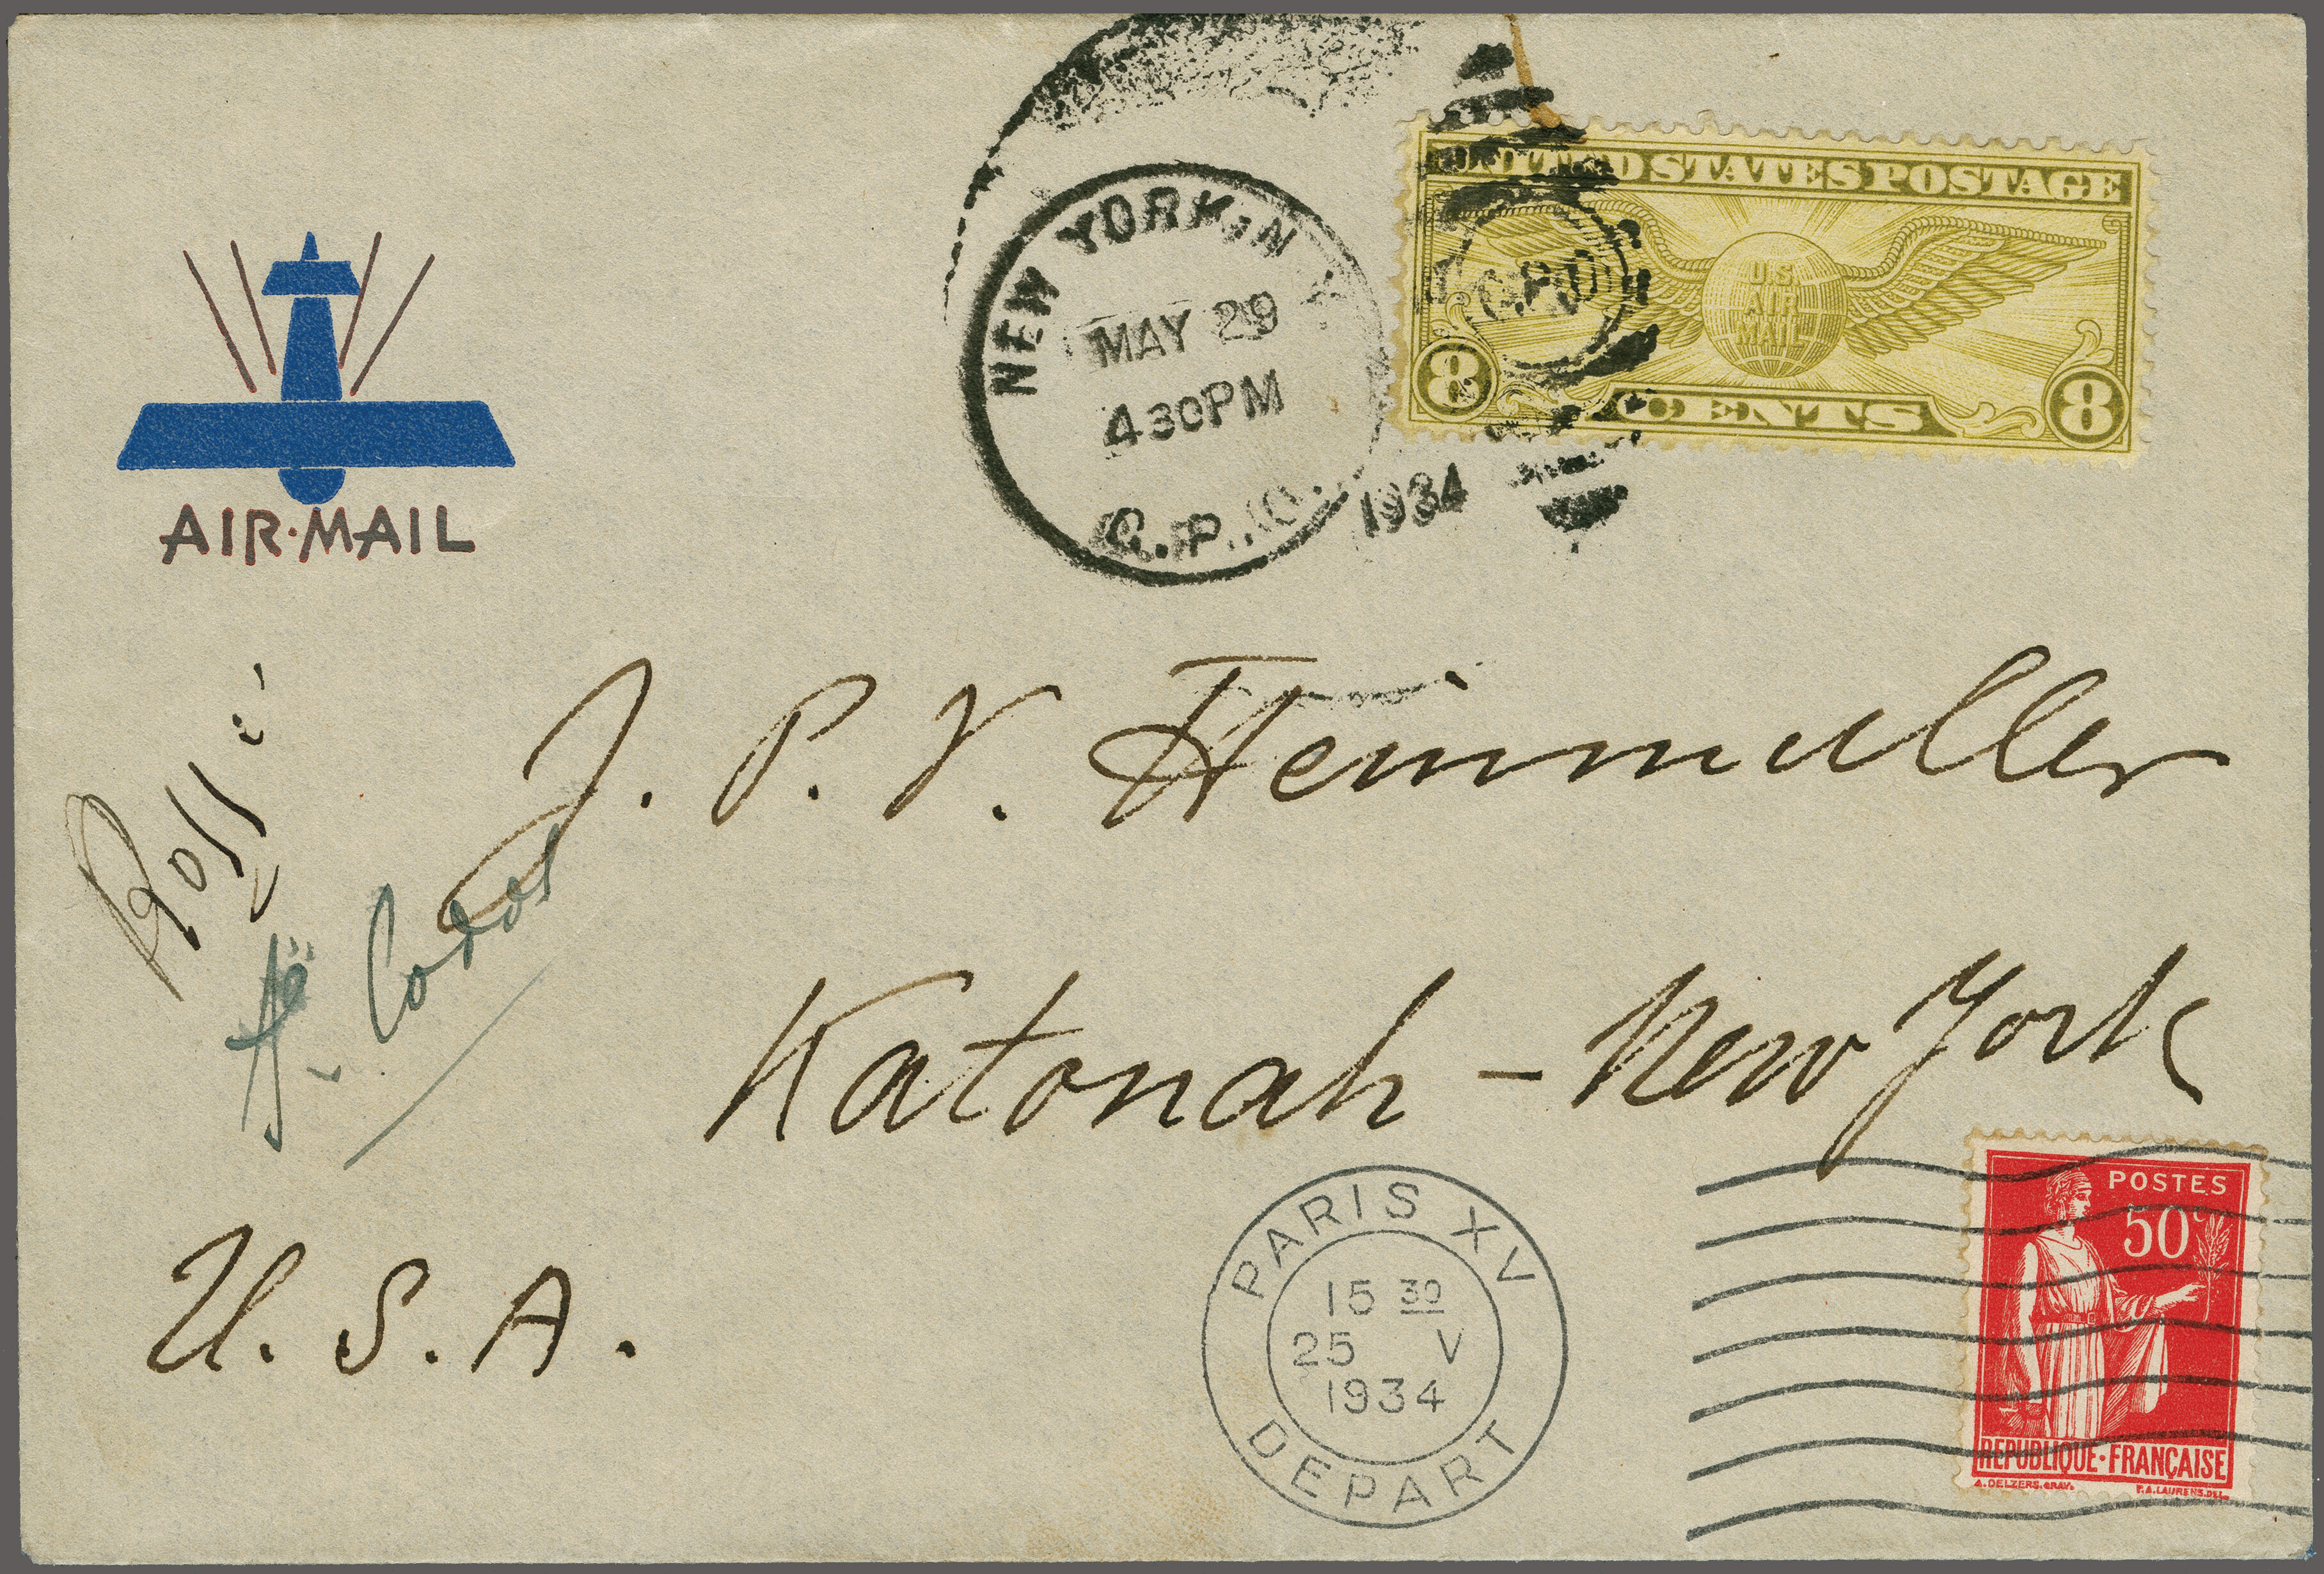 NEW YORK, N.Y.
MAY 29
430PM
G.P.O.
1934
UNITED STATES POSTAGE
U.S.
AIR
MAIL
G.P.O.
8 CENTS 8
AIR·MAIL
Rossi
J. P. V. Heinmuller
Codos
Katonah - New York
U. S. A.
PARIS XV
15 30
25 V
1934
DEPART
POSTES
50c
REPUBLIQUE·FRANÇAISE
A.DELZERS.GRAV. P.A.LAURENS.DEL.